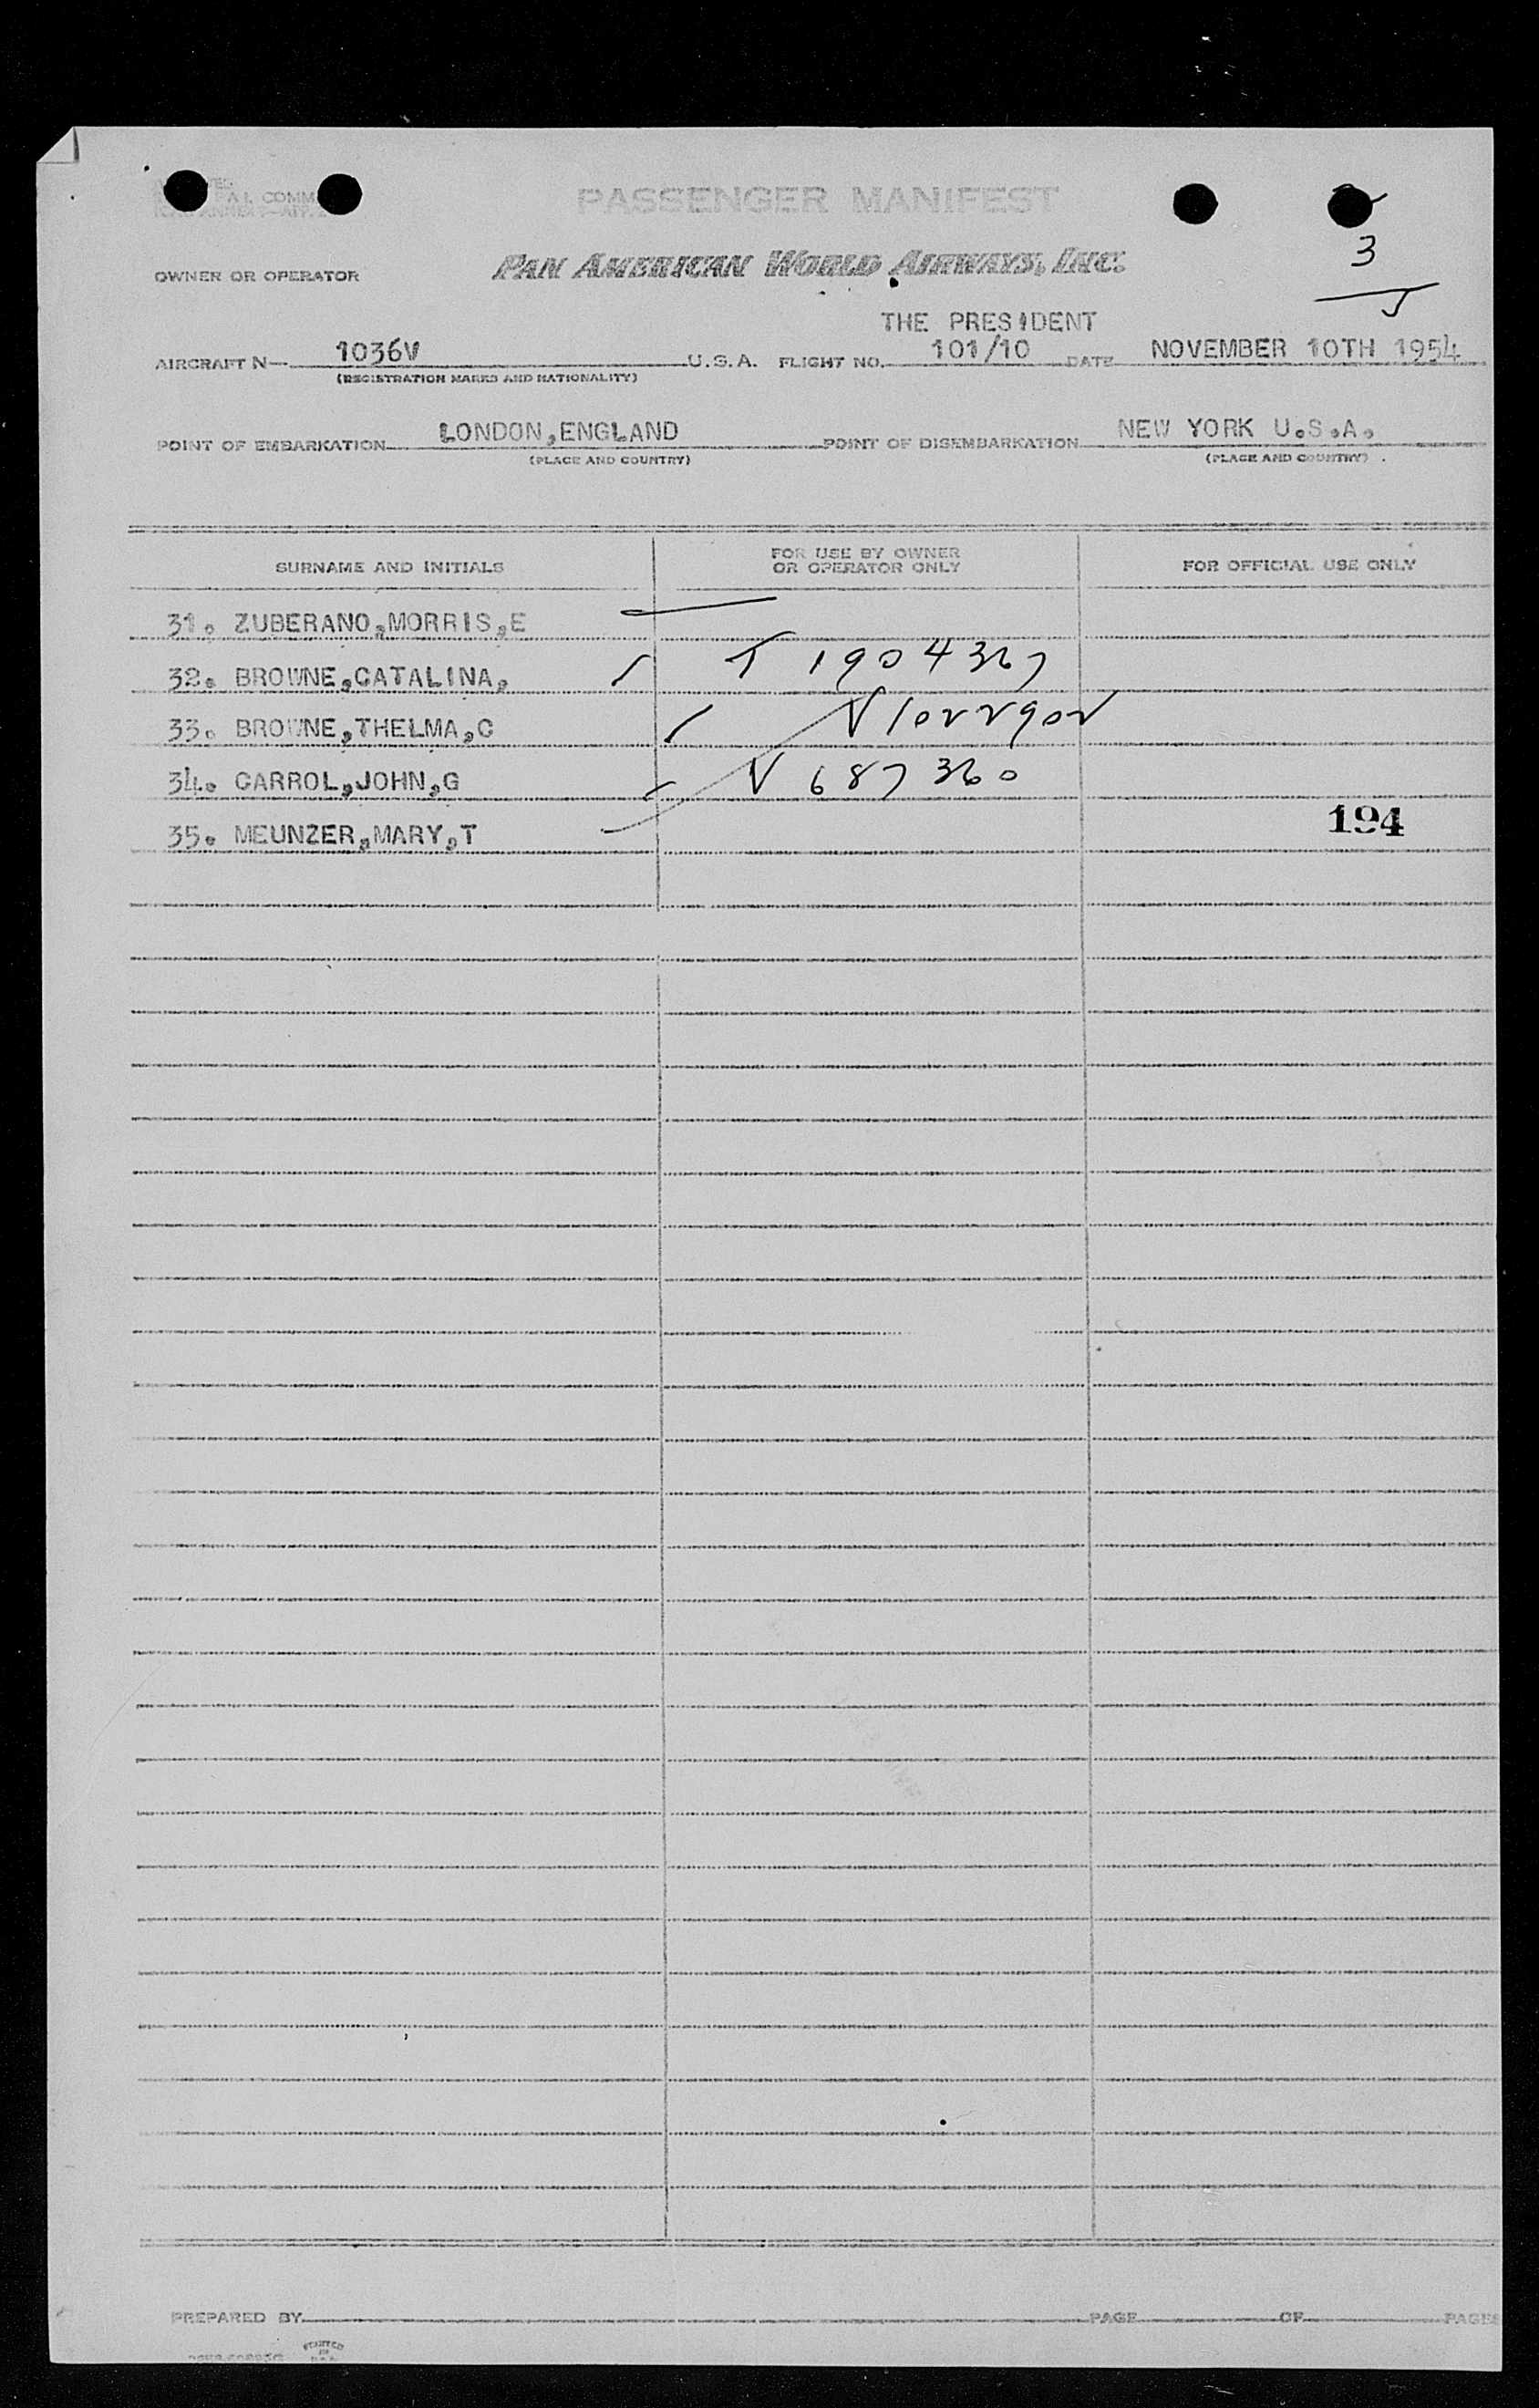 PASSENGER MANIFEST
OWNER OR OPERATOR PAN AMERICAN WORLD AIRWAYS, INC.
3
THE PRESIDENT
AIRCRAFT N— 1036V U.S.A. FLIGHT NO. 101/10 DATE NOVEMBER 10TH 1954
(REGISTRATION MARKS AND NATIONALITY)
POINT OF EMBARKATION LONDON,ENGLAND POINT OF DISEMBARKATION NEW YORK U.S.A.
(PLACE AND COUNTRY) (PLACE AND COUNTRY)
SURNAME AND INITIALS FOR USE BY OWNER OR OPERATOR ONLY FOR OFFICIAL USE ONLY
31. ZUBERANO,MORRIS,E
32. BROWNE,CATALINA, T 1904367
33. BROWNE,THELMA,C V 1022902
34. CARROL,JOHN,G V 687360
35. MEUNZER,MARY,T 194
PREPARED BY PAGE OF PAGES